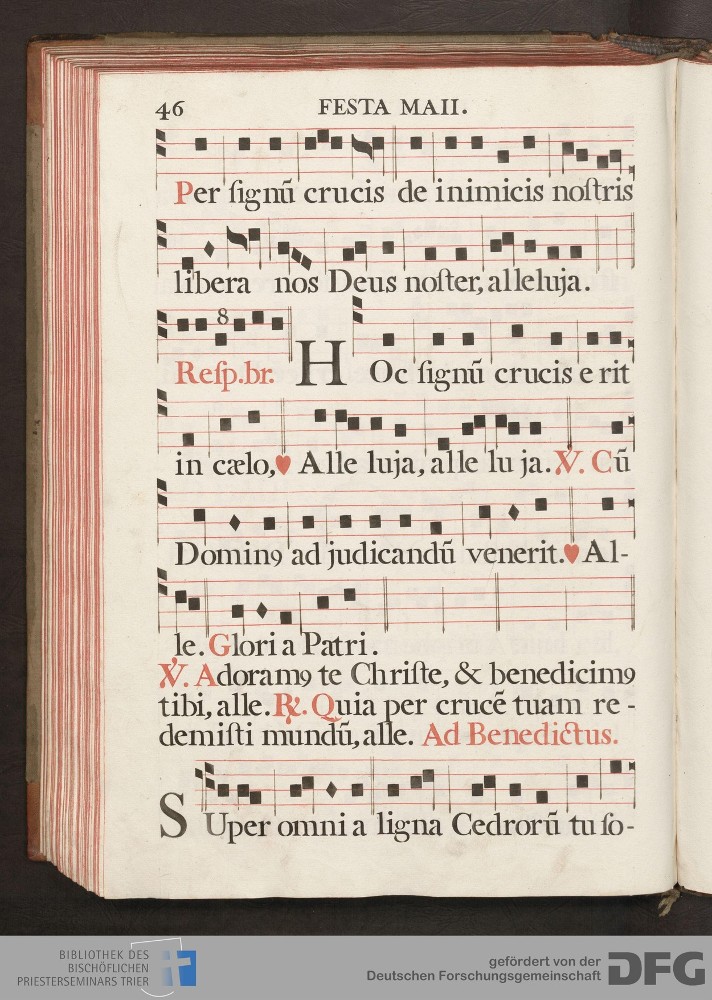 46 FESTA MAII.
Per ſignũ crucis de inimicis noſtris
libera nos Deus noſter, alleluja.
8
Reſp.br. HOc ſignũ crucis e rit
in cælo,♥ Alle luja, alle lu ja. ℣. Cũ
Dominꝰ ad judicandũ venerit.♥ Al-
le. Glori a Patri.
℣. Adoramꝰ te Chriſte, & benedicimꝰ
tibi, alle. ℟. Quia per crucẽ tuam re-
demiſti mundũ, alle. Ad Benedictus.
SUper omni a ligna Cedrorũ tu ſo-
BIBLIOTHEK DES
BISCHÖFLICHEN
PRIESTERSEMINARS TRIER
gefördert von der
Deutschen Forschungsgemeinschaft DFG